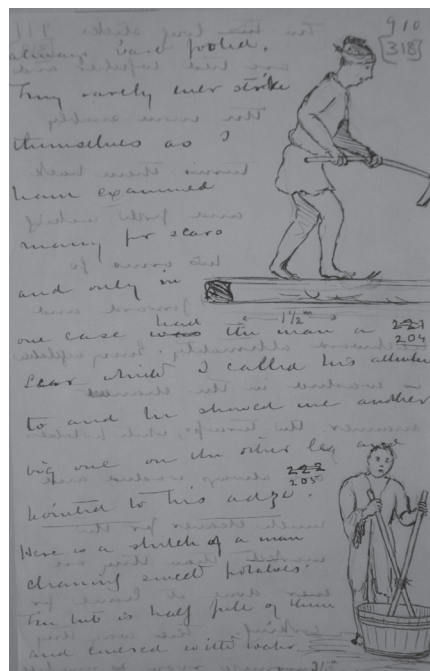 910
318
always bare footed.
They rarely ever strike
themselves as I
have examined
many for scars
and only in
1½ in
one case was had the man a
221
204
scar which I called his attention
to and he showed me another
big one on the other leg and
222
205
pointed to his adze.
Here is a sketch of a man
cleaning sweet potatoes.
The tub is half full of them
and covered with water.